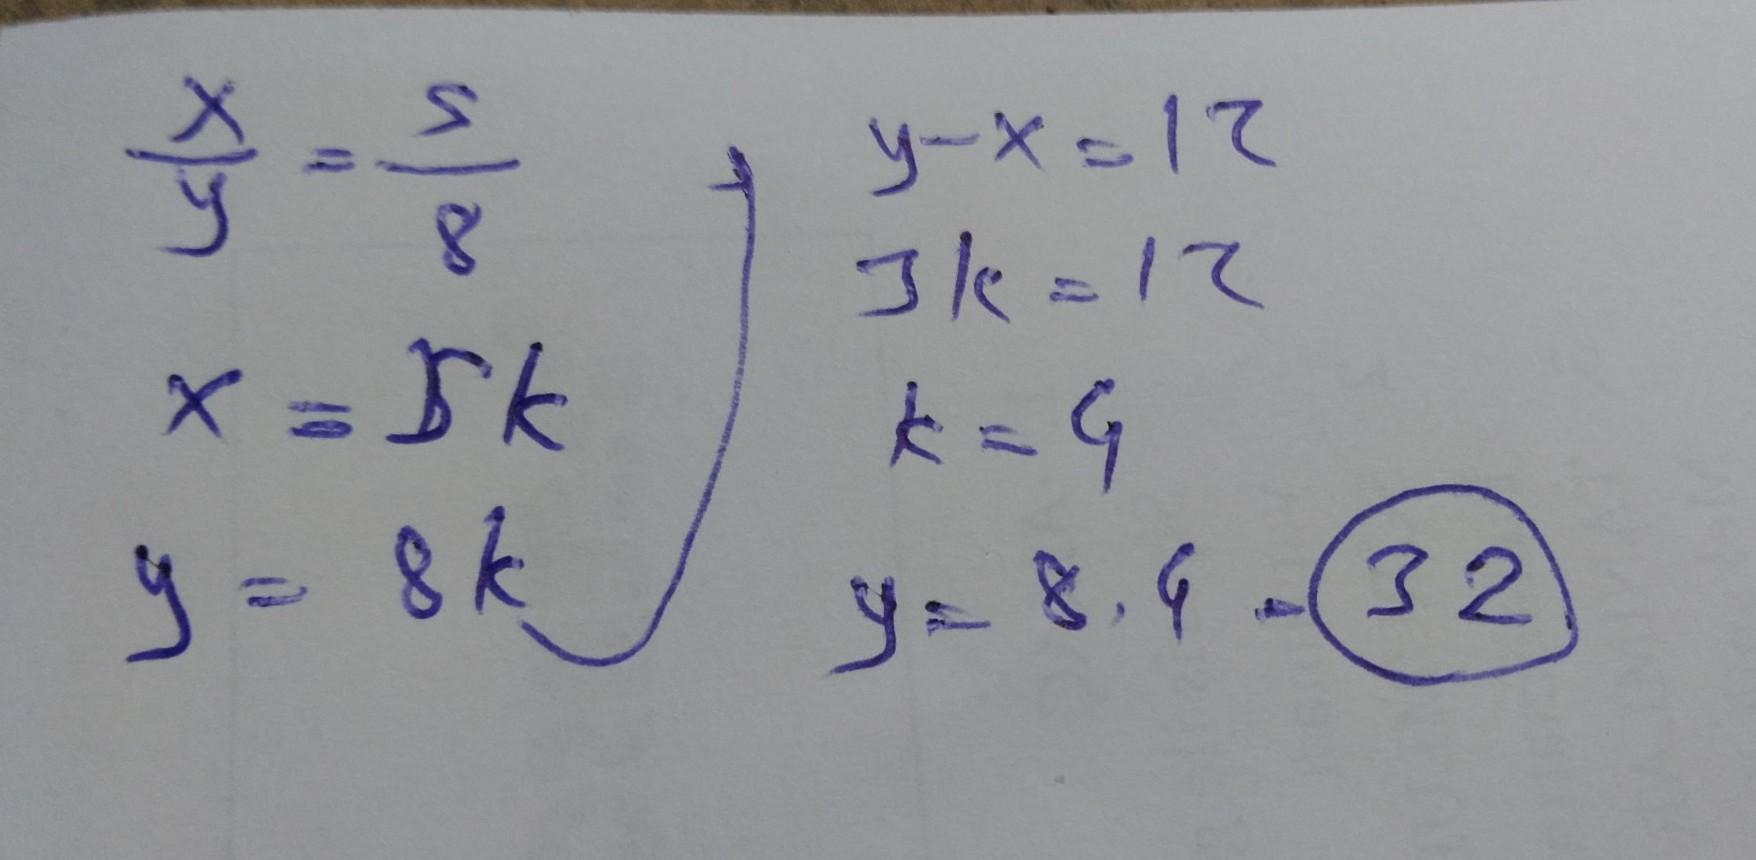 x/y = 5/8
x = 5k
y = 8k
y-x=12
3k=12
k=4
y=8.4=32